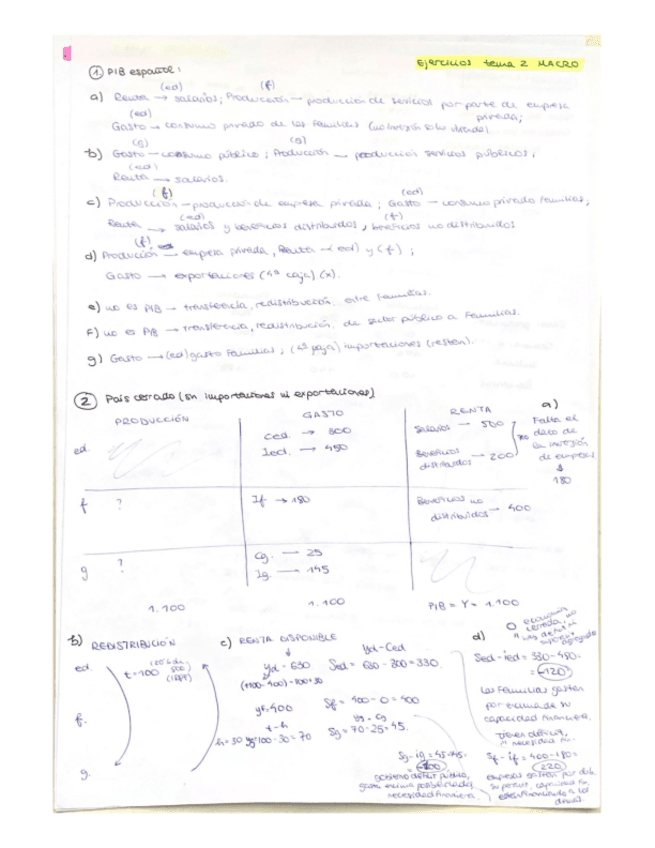 Ejercicios tema 2 MACRO
① PIB español:
(ed) (f)
a) Renta → salarios; Producción → producción de servicios por parte de empresa
privada;
(ed)
Gasto → consumo privado de las familias
(g) (g)
b) Gasto → consumo público; Producción → producción servicios públicos;
(ed)
Renta → salarios.
(f) (ed)
c) Producción → producción de empresa privada; Gasto → consumo privado familias;
(ed) (f)
Renta → salarios y beneficios distribuidos, beneficios no distribuidos
(f)
d) Producción → empresa privada, Renta → (ed) y (f);
Gasto → exportaciones (4ª caja) (x).
e) no es PIB → transferencia, redistribución, entre familias.
f) no es PIB → transferencia, redistribución, de sector público a familias.
g) Gasto → (ed) gasto familias; (4ª caja) importaciones (resten).
② País cerrado (sin importaciones ni exportaciones)
PRODUCCIÓN GASTO RENTA a)
ed. Ced → 300 Salarios → 500 Falta el
Ied. → 450 Beneficios distribuidos → 200 dato de
la inversión
de empresas
180
f ? If → 180 Beneficios no distribuidos → 400
g ? Cg. → 25
Ig. → 145
1.100 1.100 PIB = Y = 1.100
b) REDISTRIBUCIÓN c) RENTA DISPONIBLE d)
Yd-Ced
ed. t=100 Yd = 630 Sed = 630-300=330. Sed-ied=330-450.
(1100-400)-100+30 = -120
f. yf=400 Sf = 400-0=400 Las familias gastan
por encima de su
capacidad financiera.
t-h yg-cg
h=30 yg=100-30=70 Sg=70-25=45. Tienen déficit,
necesidad fin.
g. Sg-ig=45-145= Sf-if=400-180=
-100 220